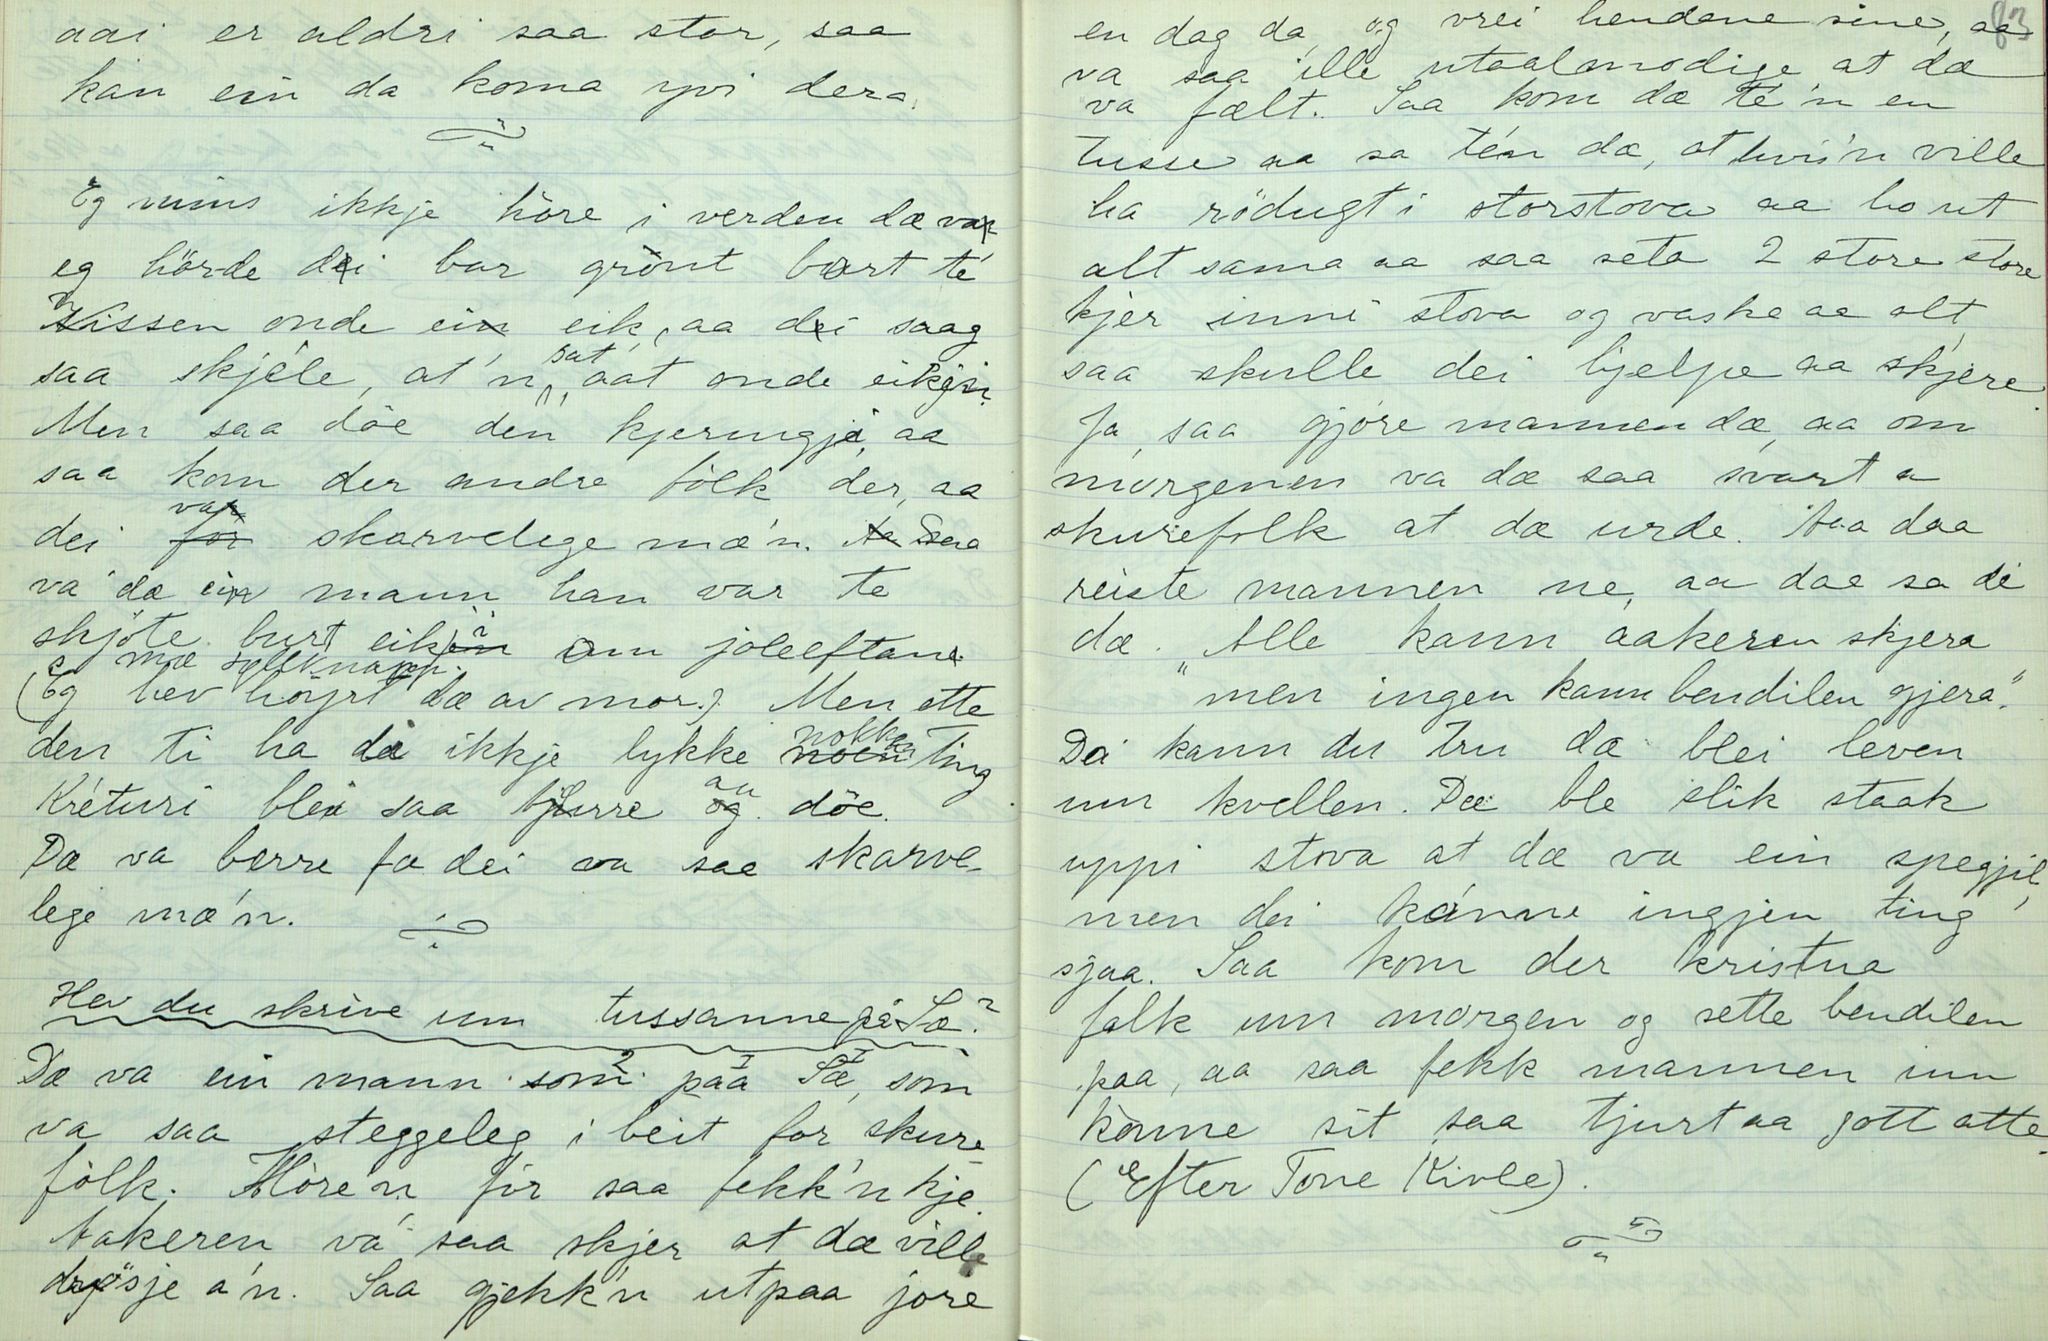 aai er aldri saa stor, saa
kan ein da koma yvi dera.
Eg mins ikkje hòre i verden dæ var
eg hörde dei bar grònt bort té
Nissen onde ein eik, aa dei saag
saa skjéle, at'n sat aat onde eikjsi.
Men saa döe den kjeringji, aa
saa kom der andre fòlk der, aa
dei fór var skarvelege mæ'n. Aa Saa
va dæ ein mann han var te
skjöte burt eikjin um joleeftane
mæ syllknapp.
(Eg hev höyrt dæ av mor.) Men ette
den ti ha dei ikkje lykke noen nokken ting
Kréturi blei saa tjurre og aa döe.
Dæ va berre fæ dei va saa skarve-
lege mæ'n.
Hev du skrive um tussanne på Sæ?
Dæ va ein mann som paa Sæ, som
va saa steggeleg i beit for skure
fòlk. Hòre'n fór saa fekk'n kje.
Aakeren va saa skjer at dæ ville
drysje a'n. Saa gjekk'n utpaa jore
83
en dag da og vrei hendene sine, aa
va saa ille utaalmodige at dæ
va fælt. Saa kom dæ té'n en
tusse aa sa té'n dæ, at hvis'n ville
ha rödugt i storstova aa ho ut
alt sama aa saa seta 2 store store
kjer inni stova og vaske aa alt,
saa skulle dei hjelpe aa skjere
Ja, saa gjóre mannen dæ, aa om
morgenen va dæ saa svart a
skurefolk at dæ urde. Aa daa
reiste mannen ne, aa daa sa dei
dæ. Alle kann aakeren skjera
"men ingen kann bendilen gjera".
Dei kann du tru dæ blei leven
um kvellen. Dæ ble slik staak
uppi stova at dæ va ein spegjil,
men dei kánne ingjen ting
sjaa. Saa kom der kristne
folk um morgen og sette bendilen
paa, aa saa fekk mannen inn
kònne sit saa tjurt aa gott atte.
(Efter Tone Kivle).